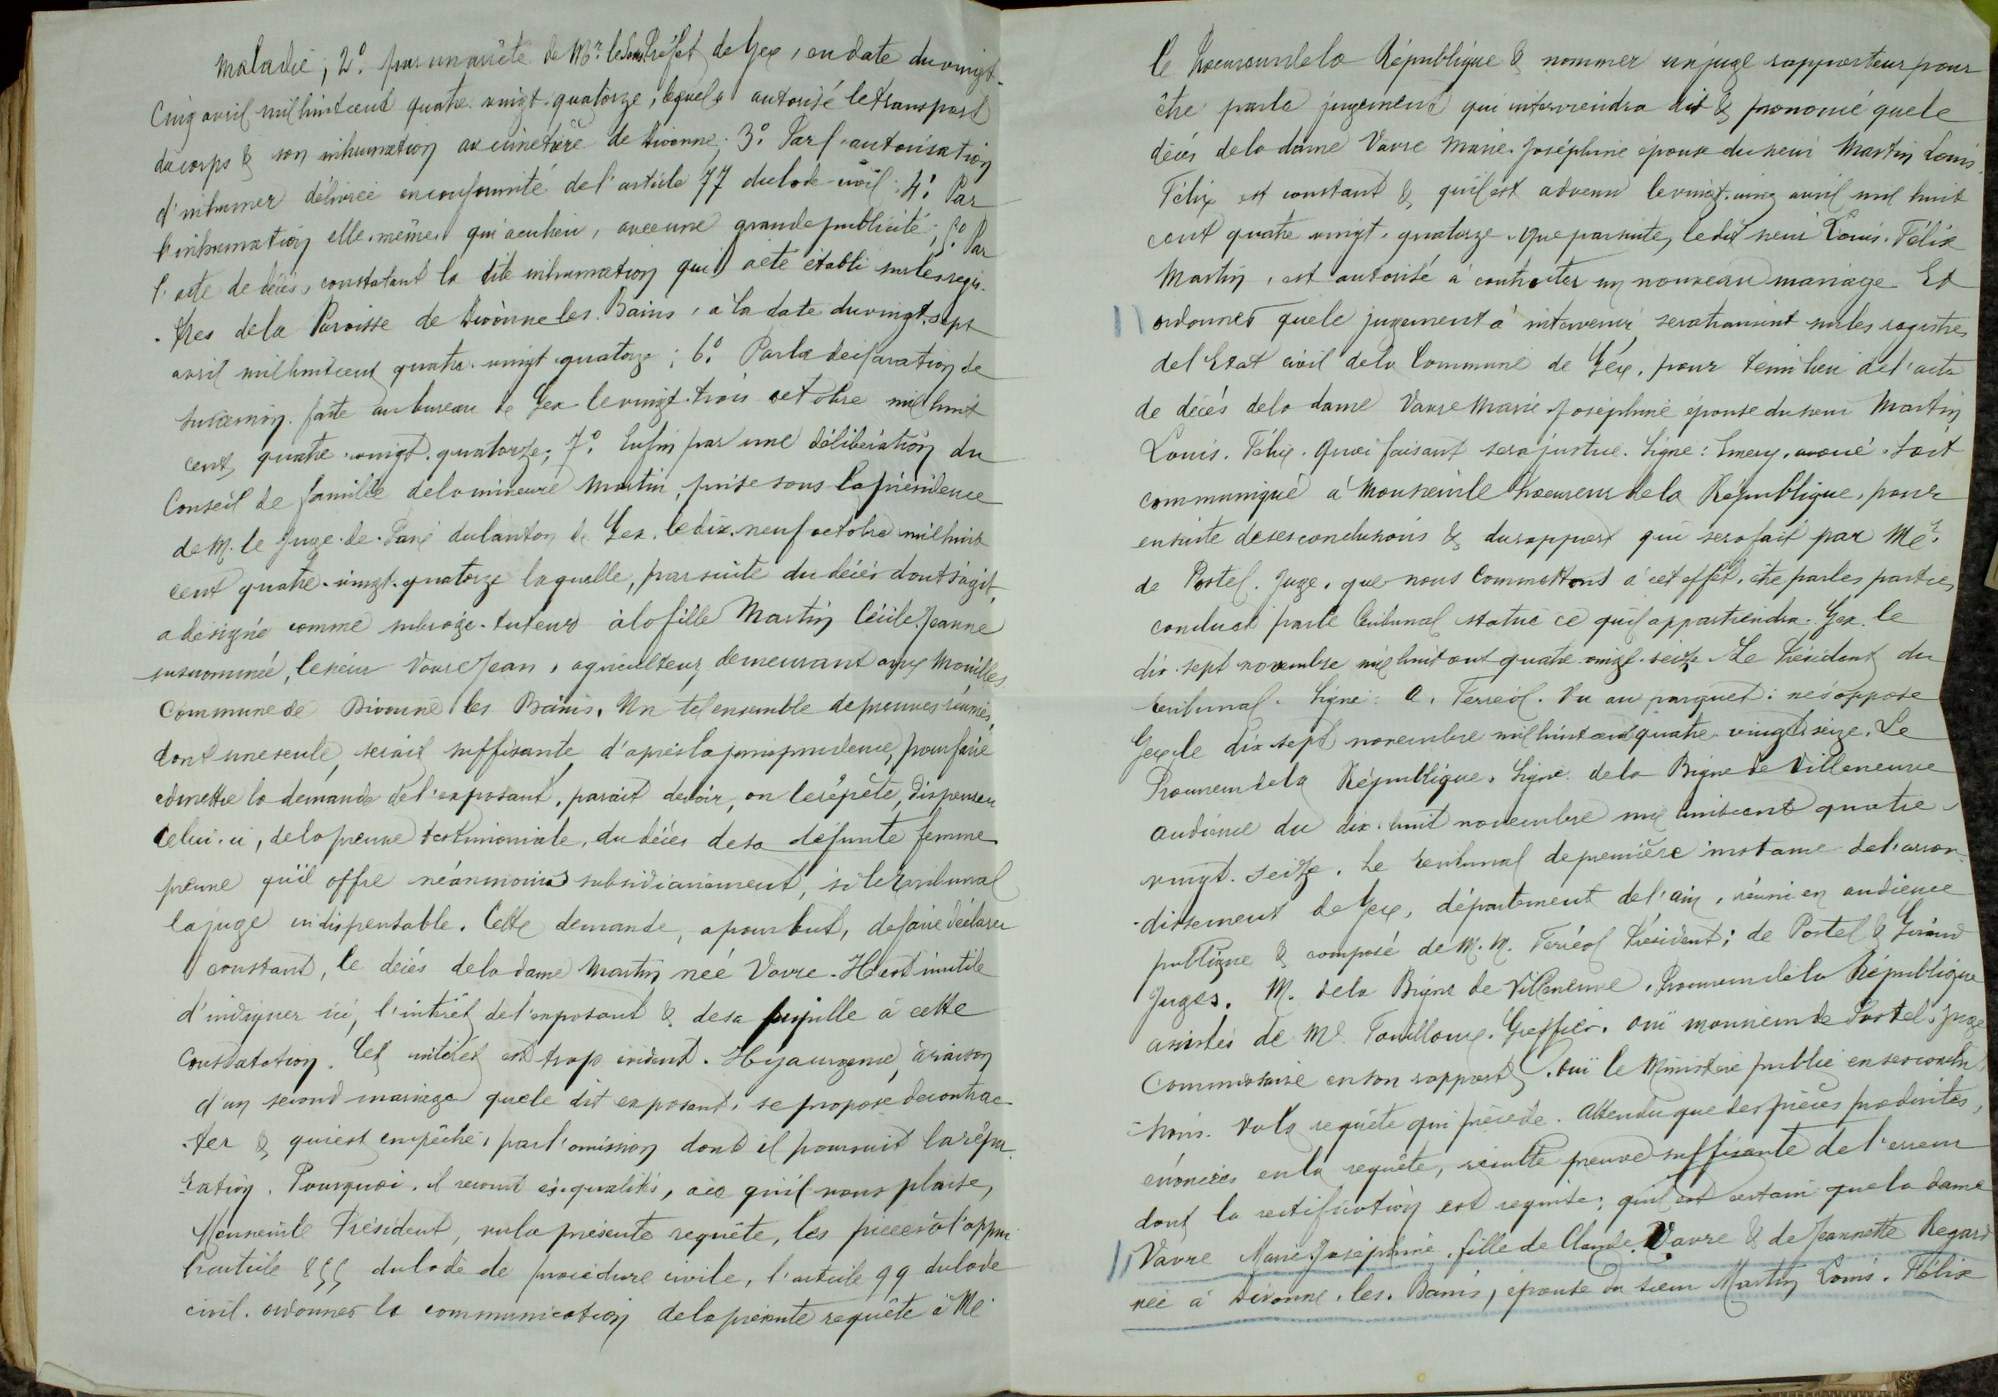 maladie; 2º par un arrêté de Mr. le Sous Préfet de Gex, en date du vingt-
cinq avril mil huit cent quatre-vingt-quatorze, lequel a autorisé le transport
du corps & son inhumation au cimetière de Divonne; 3º Par l'autorisation
d'inhumer délivrée en conformité de l'article 77 du Code civil; 4º Par
l'inhumation elle-même, qui a eu lieu, avec une grande publicité; 5º Par
l'acte de décès, constatant la dite inhumation qui a été établi sur les regis-
-tres de la Paroisse de Divonne les Bains, à la date du vingt-sept
avril mil huit cent quatre-vingt-quatorze; 6º Par la déclaration de
succession faite au bureau de Gex le vingt-trois octobre mil huit
cent quatre-vingt-quatorze; 7º Enfin par une délibération du
Conseil de famille de la mineure Martin, prise sous la présidence
de M. le Juge-de-Paix du canton de Gex, le dix-neuf octobre mil huit
cent quatre-vingt-quatorze laquelle, par suite du décès dont s'agit,
a désigné comme subrogé-tuteur à la fille Martin Cécile Jeanne
susnommée, le sieur Vavre Jean, agriculteur, demeurant aux Mouilles,
Commune de Divonne les Bains. Un tel ensemble de preuves réunies,
dont une seule, serait suffisante, d'après la jurisprudence, pour faire
admettre la demande de l'exposant, paraît devoir, on le répète, dispenser
celui-ci, de la preuve testimoniale, du décès de sa défunte femme
preuve qu'il offre néanmoins subsidiairement, si le tribunal
la juge indispensable. Cette demande, a pour but, de faire déclarer
constant, le décès de la dame Martin née Vavre. Il est inutile
d'indiquer ici, l'intérêt de l'exposant & de sa pupille à cette
constatation. Cet intérêt est trop évident. Il y a urgence, à raison
d'un second mariage que le dit exposant, se propose de contrac-
-ter & qui est empêché, par l'omission dont il poursuit la répa-
ration. Pourquoi, il recourt ès-qualités, à ce qu'il vous plaise,
Monsieur le Président, vu la présente requête, les pièces à l'appui
l'article 855 du Code de procédure civile, l'article 99 du Code
civil, ordonner la communication de la présente requête à Mr
le Procureur de la République & nommer un juge rapporteur pour
être par le jugement qui interviendra dit & prononcé que le
décès de la dame Vavre Marie-Joséphine épouse du sieur Martin Louis.
Félix est constant & qu'il est advenu le vingt-cinq avril mil huit
cent quatre vingt-quatorze. Que par suite, le dit sieur Louis-Félix
Martin, est autorisé à contracter un nouveau mariage. Et
ordonner que le jugement à intervenir sera transcrit sur les registres
de l'Etat civil de la Commune de Gex, pour tenir lieu de l'acte
de décès de la dame Vavre Marie-Joséphine épouse du sieur Martin
Louis-Félix. Quoi faisant sera justice. Signé: Emery, avoué. Soit
communiqué à Monsieur le Procureur de la République, pour
ensuite de ses conclusions & du rapport qui sera fait par Mr.
de Postel, Juge, que nous commettons à cet effet, être par les parties
conclu & par le tribunal statué ce qu'il appartiendra. Gex, le
dix-sept novembre mil huit cent quatre vingt-seize. Le Président du
tribunal. Signé: A. Ferréol. Vu au parquet: ne s'oppose
Gex, le dix-sept novembre mil huit cent quatre-vingt seize. Le
Procureur de la République. Signé de la Bigne de Villeneuve
audience du dix-huit novembre mil huit cent quatre-
vingt-seize. Le tribunal de première instance de l'arron-
-dissement de Gex, département de l'ain, réuni en audience
publique & composé de M.M. Ferréol Président; de Postel & Girard
Juges. M. de la Bigne de Villeneuve, Procureur de la République
assistés de Me Fouilloux, Greffier. Ouï monsieur de Postel, Juge
Commissaire en son rapport. Ouï le Ministère public en ses conclu-
-sions. Vu la requête qui précède. Attendu que des pièces produites,
énoncées en la requête, résulte preuve suffisante de l'erreur
dont la rectification est requise; qu'il est certain que la dame
Vavre Marie Joséphine, fille de Claude Vavre & de Jeannette Regard
née à Divonne-les-Bains, épouse du sieur Martin Louis-Félix